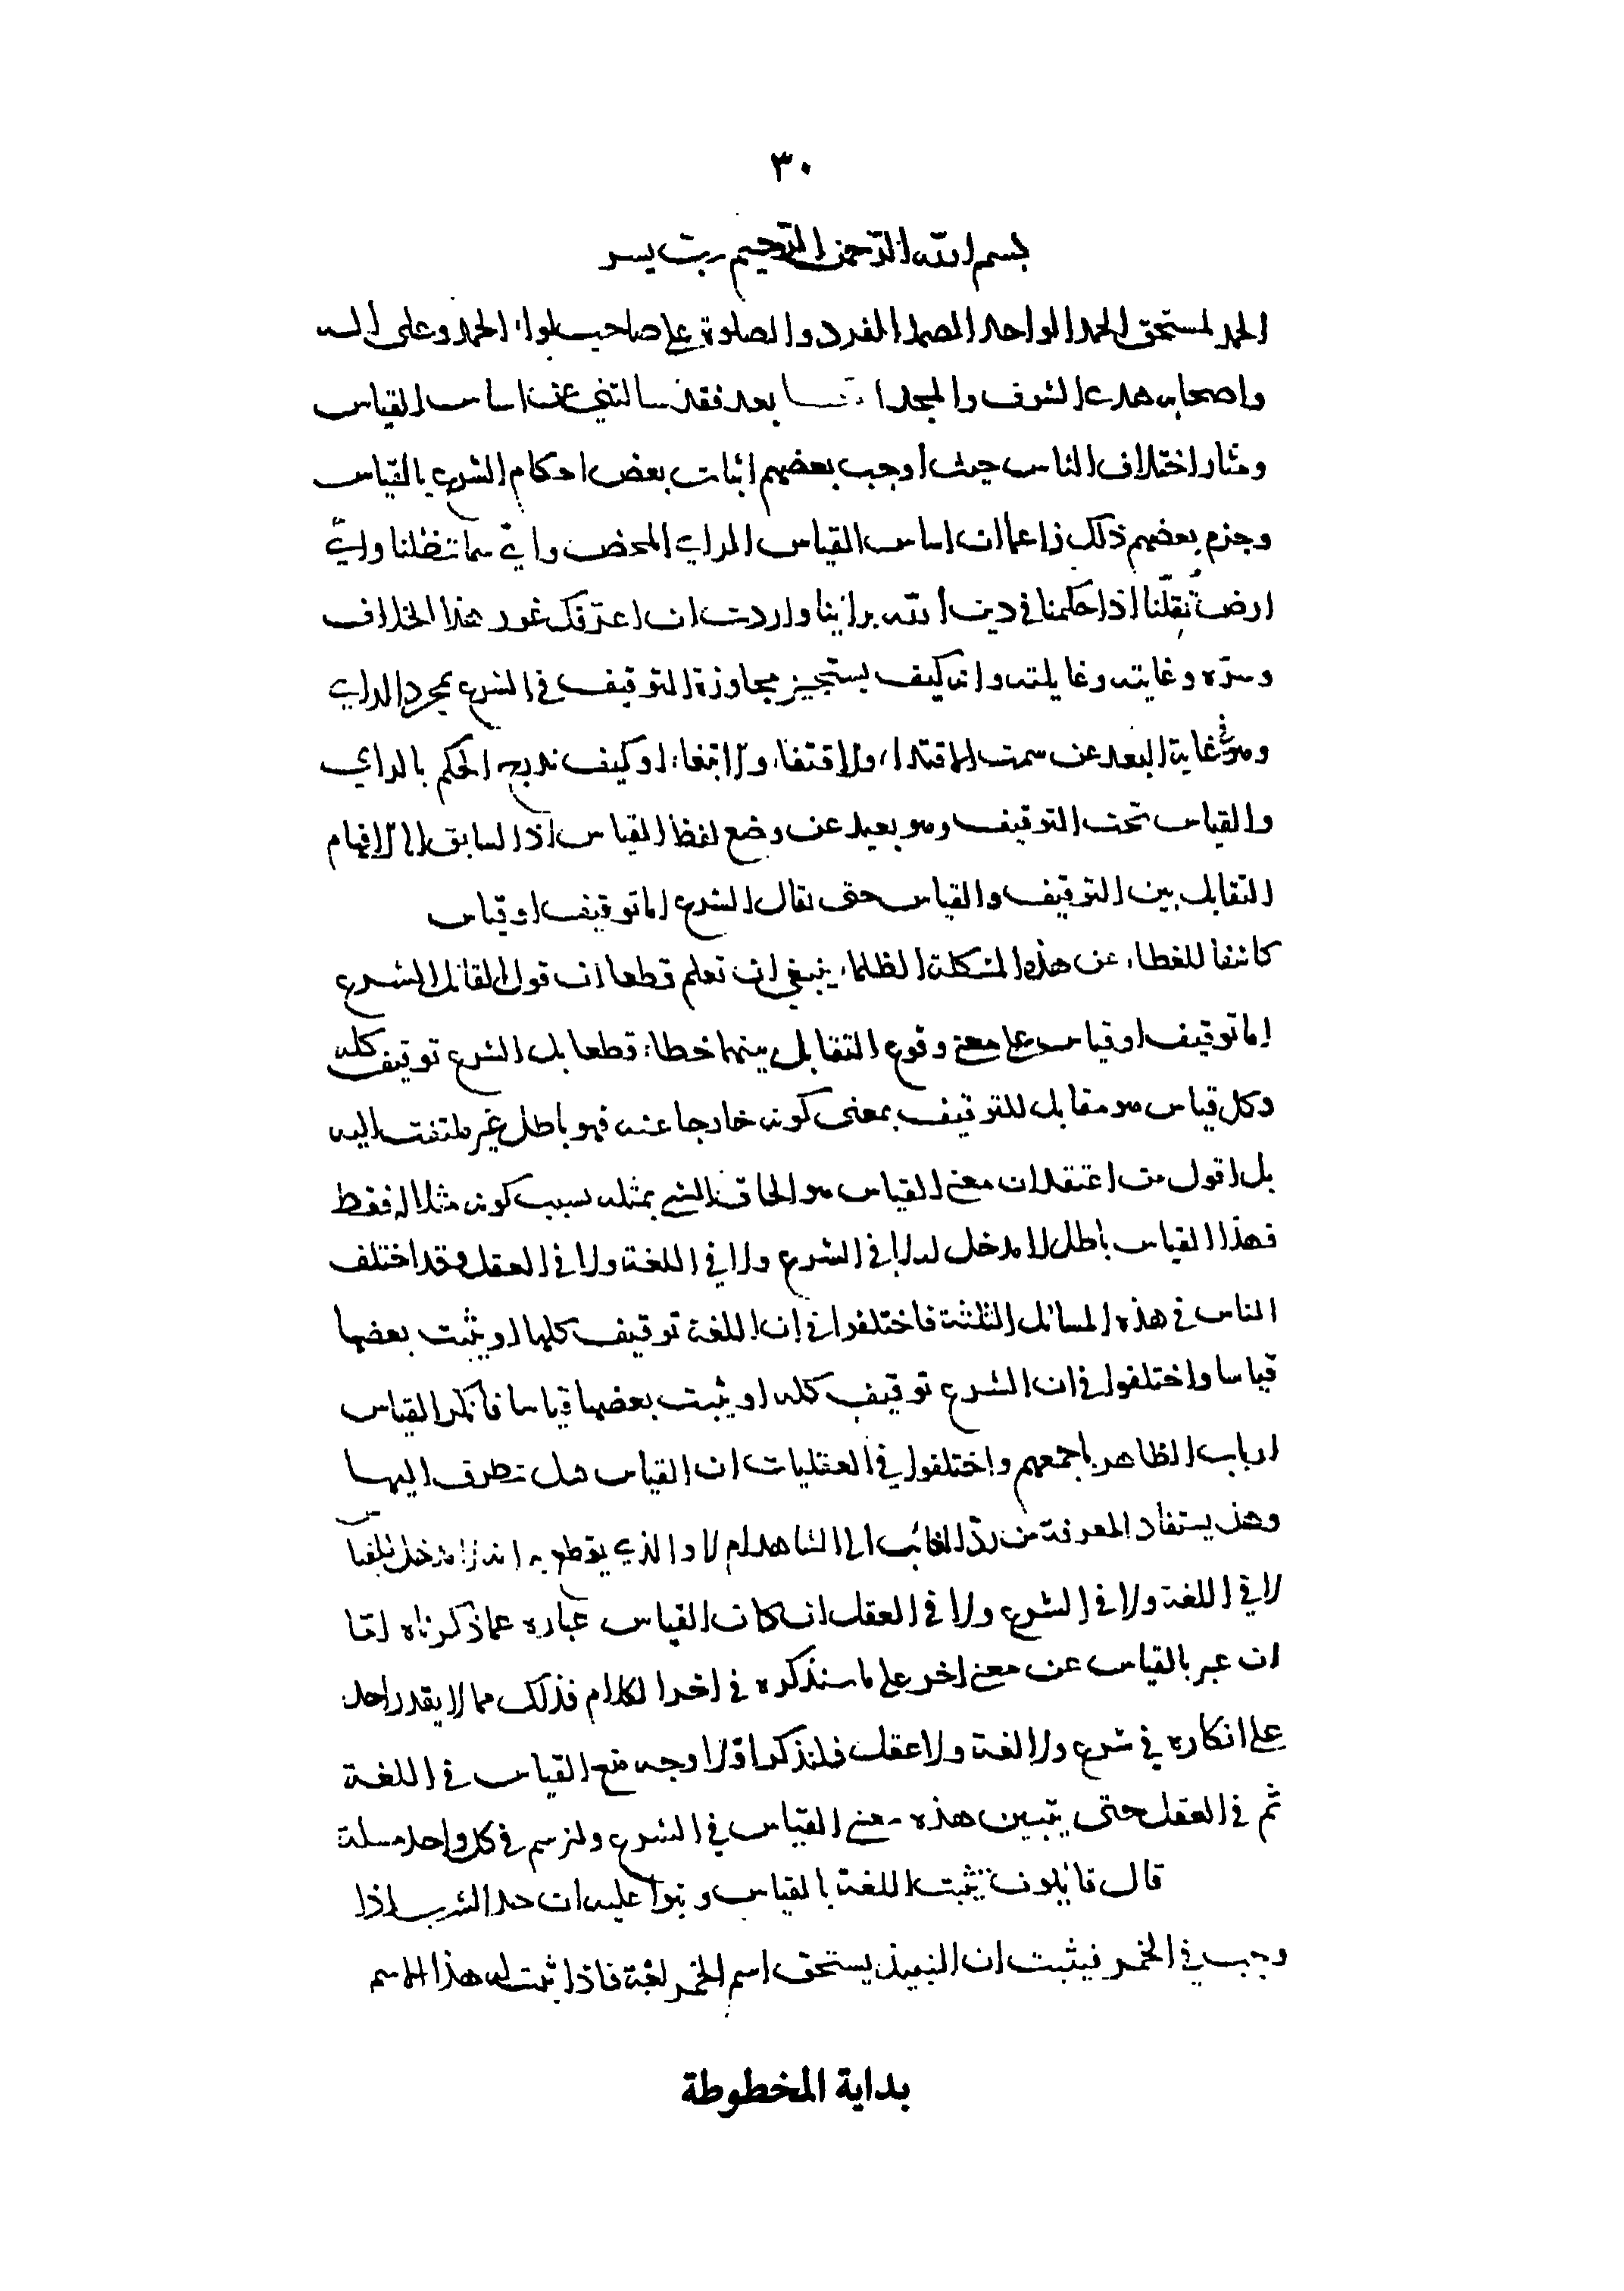 ٣٠
بسم الله الرحمن الرحيم رب يسر
الحمد لمستحق الحمد الواحد الصمد الفرد والصلوة على صاحب لواء الحمد وعلى اله
واصحابه هداة الشرف والمجد اما بعد فقد سالتني عن اساس القياس
ومثار اختلاف الناس حيث اوجب بعضهم اثبات بعض احكام الشرع بالقياس
وجزم بعضهم ذلك زاعما ان اساس القياس الراي المحض واي سما تظلنا واي
ارض تقلنا اذا حكمنا في دين الله براينا واردت ان اعرفك غور هذا الخلاف
وسره وغايته وغايلته وانه كيف يستجيز مجاوزة التوقيف في الشرع بمجرد الراي
وهو في غاية البعد عن سمت الاقتداء والاقتفاء والاتبغاء او كيف ندرج الحكم بالراي
والقياس تحت التوقيف وهو بعيد عن وضع لفظ القياس اذ السابق الى الافهام
التقابل بين التوقيف والقياس حتى يقال الشرع اما توقيف او قياس
كاشفا للغطاء عن هذه المشكلة الظلماء ينبغي ان تعلم قطعا ان قول القائل الشرع
اما توقيف او قياس على معنى وقوع التقابل بينهما خطاء قطعا بل الشرع توقيف كله
وكل قياس هو مقابل للتوقيف بمعنى كونه خارجا عنه فهو باطل غير ملتفت اليه
بل اقول من اعتقد ان معنى القياس هو الحاق الشي بمثله بسبب كونه مثلا له فقط
فهذا القياس باطل لا مدخل له لا في الشرع ولا في اللغة ولا في العقل وقد اختلف
الناس في هذه المسائل الثلثة فاختلفوا في ان اللغة توقيف كلها او يثبت بعضها
قياسا واختلفوا في ان الشرع توقيف كله او يثبت بعضها قياسا فانكر القياس
ارباب الظاهر باجمعهم واختلفوا في العقليات ان القياس هل تطرق اليها
وهل يستفاد المعرفة من رد الغائب الى الشاهد ام لا والذي يقطع به انه لا مدخل للقياس
لا في اللغة ولا في الشرع ولا في العقل ان كان القياس عباره عما ذكرناه اما
ان عبر بالقياس عن معنى اخر على ما سنذكره في اخر الكلام فذلك مما لا يقدر احد
على انكاره في شرع ولا لغة ولا عقل فلنذكر اولا وجه منع القياس في اللغة
ثم في العقل حتى يتبين هذه معنى القياس في الشرع ولنرسم في كل واحد مسلة
قال قائلون يثبت اللغة بالقياس وبنوا عليه ان حد الشرب اذا
وجب في الخمر فيثبت ان النبيذ يستحق اسم الخمر لغة فاذا ثبت له هذا الاسم
بداية المخطوطة